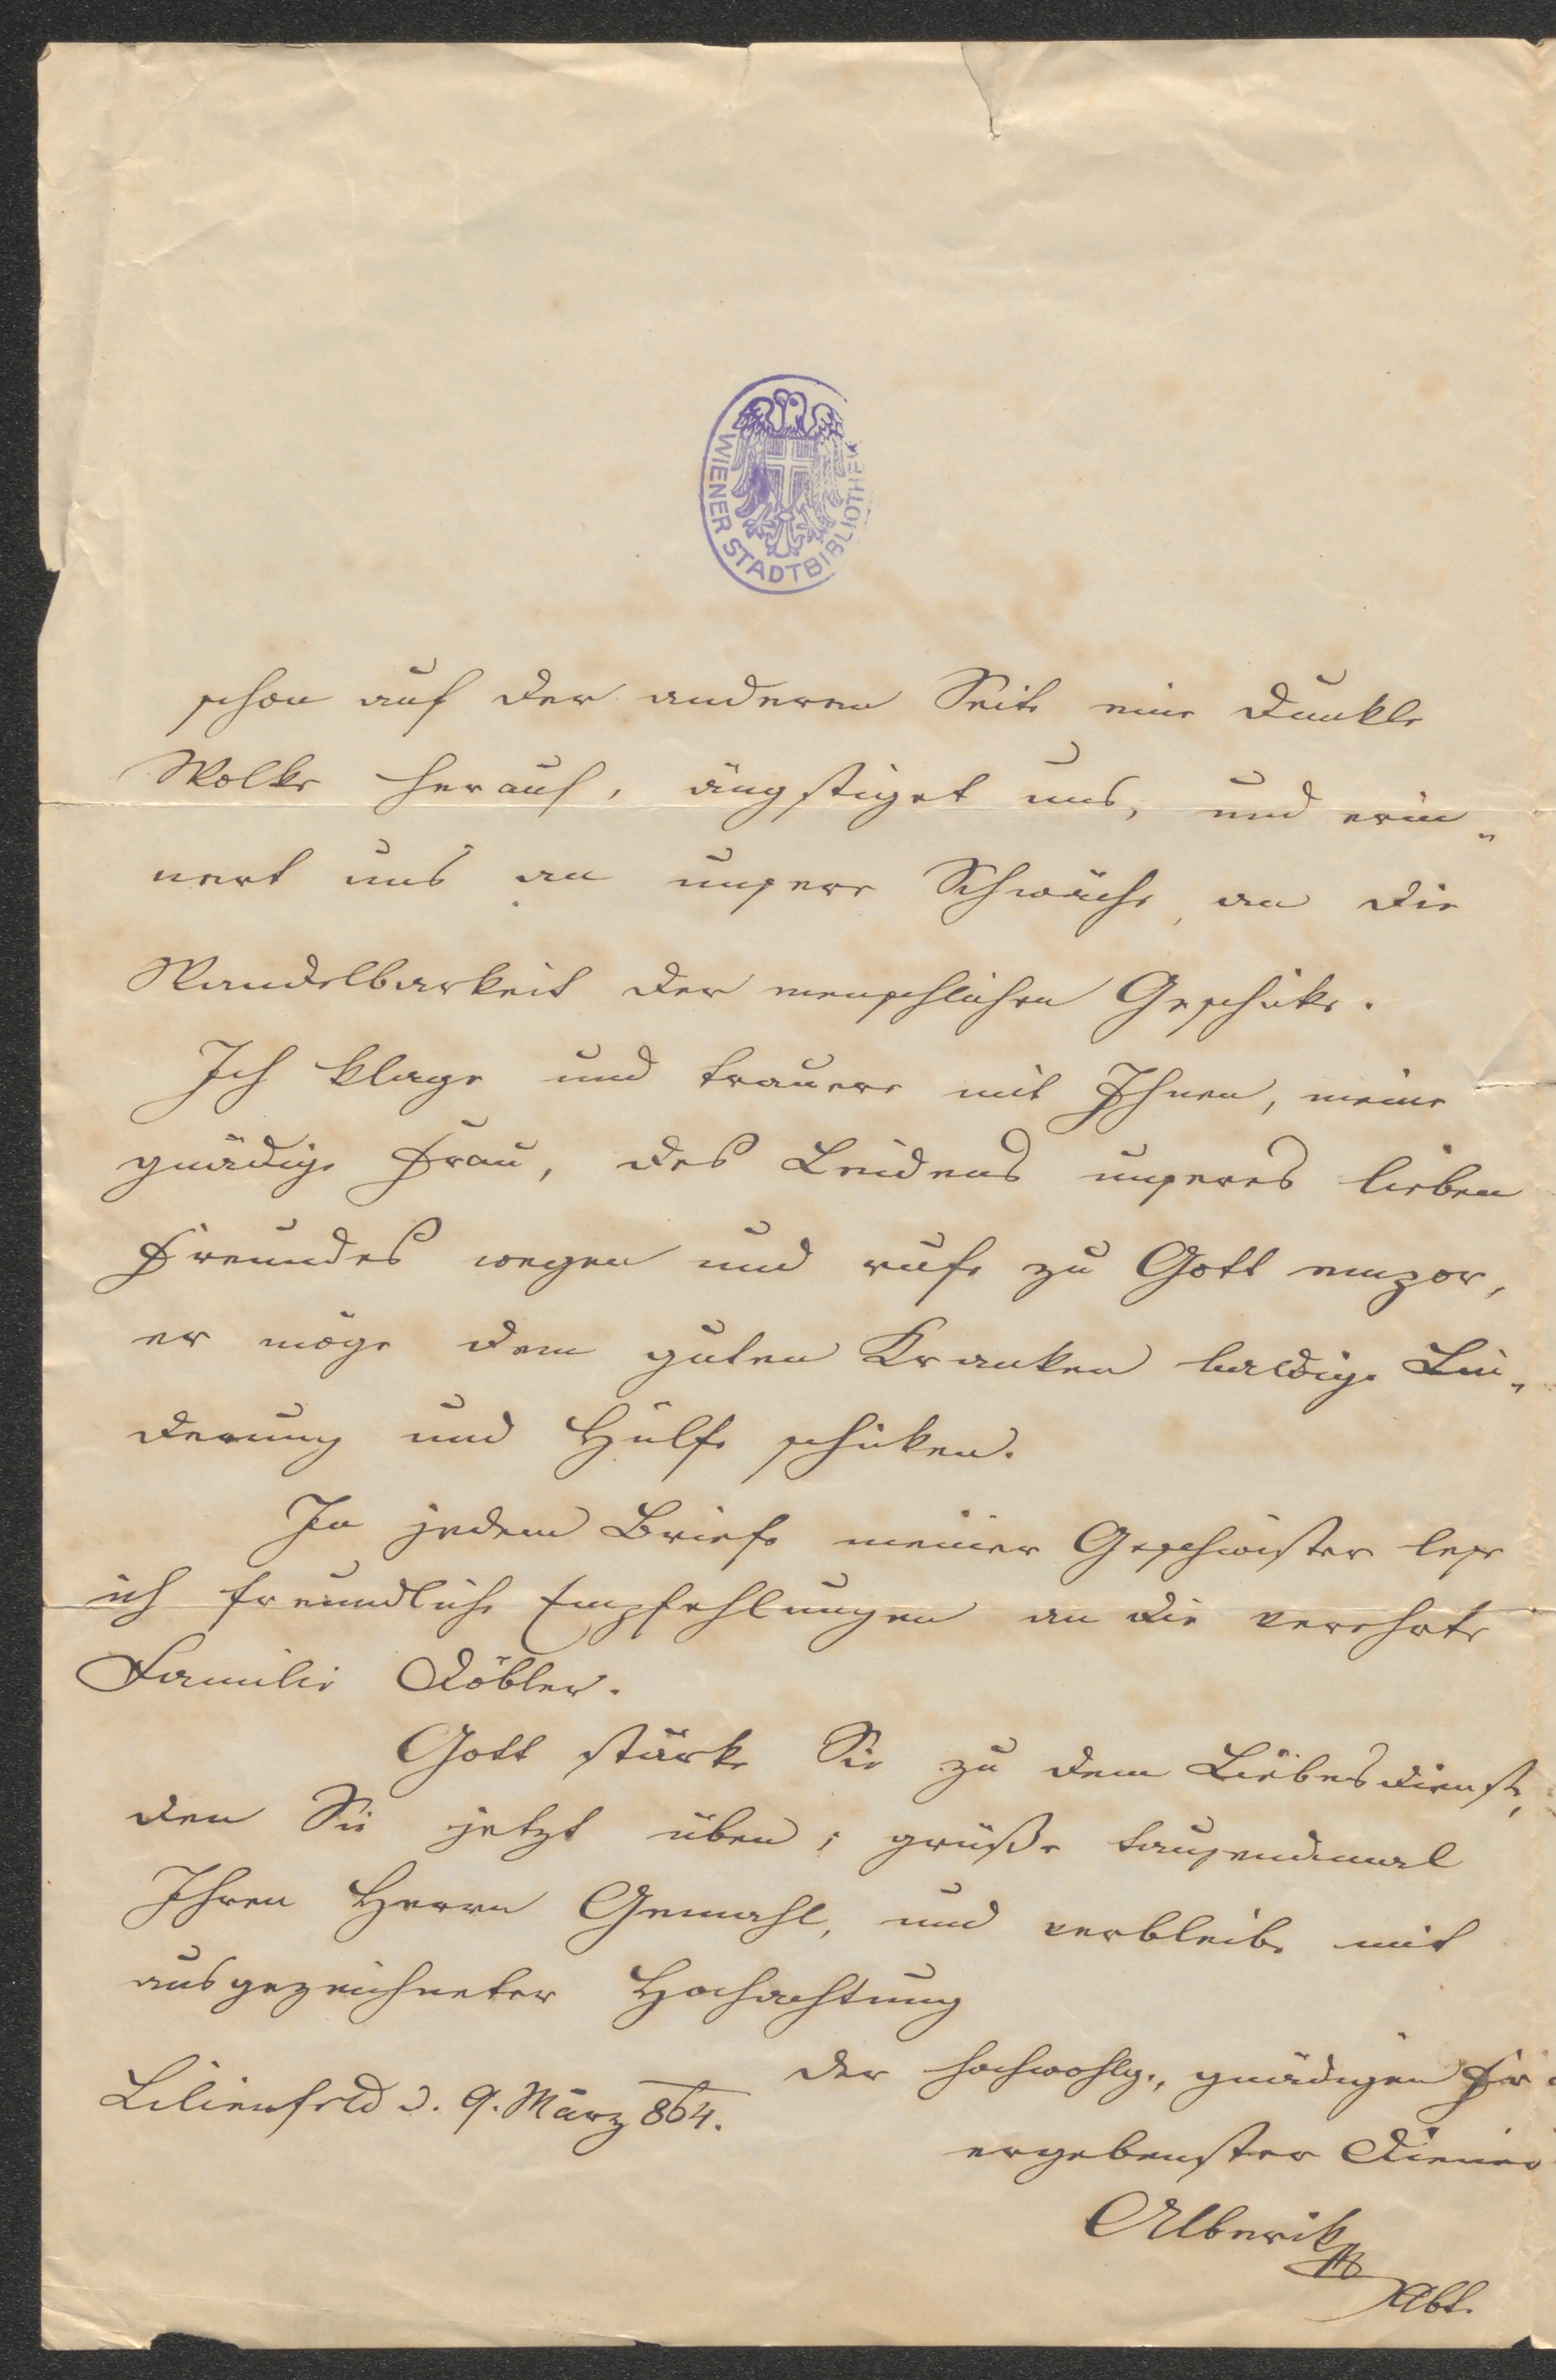 WIENER STADTBIBLIOTHEK
schon auf der anderen Seite eine dunkle
Wolke herauf, ängstiget uns, und erin„
nert uns an unsere Schwäche, an die
Wandelbarkeit der menschlichen Geschike.
Ich klage und trauere mit Ihnen, meine
gnädige Frau, des Leidens unseres lieben
Freundes wegen und rufe zu Gott empor,
er möge dem guten Kranken baldige Lin„
derung und Hülfe schiken.
In jedem Briefe meiner Geschwister lese
ich freundliche Empfehlungen an die verehrte
Familie Köbler.
Gott stärke Sie zu dem Liebesdienste,
den Sie jetzt üben; grüße tausendmal
Ihren Herrn Gemahl, und verbleibe mit
ausgezeichneter Hochachtung
der hochwohlg., gnädigen Fr
Lilienfeld d. 9. März 864.
ergebenster Diener
Alberik
Abt.